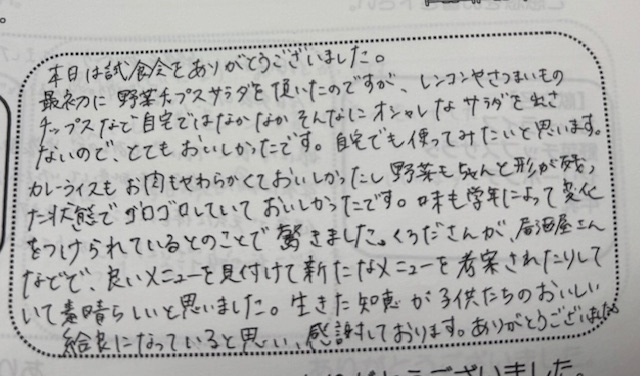 本日は試食会をありがとうございました。
最初に野菜チップスサラダを頂いたのですが、レンコンやさつまいもの
チップスなど自宅ではなかなかそんなにオシャレなサラダを出さ
ないので、とてもおいしかったです。自宅でも使ってみたいと思います。
カレーライスもお肉もやわらかくておいしかったし野菜もちゃんと形が残っ
た状態でゴロゴロしていておいしかったです。味も学年によって変化
をつけられているとのことで驚きました。くろださんが、居酒屋さん
などで、良いメニューを見付けて新たなメニューを考案されたりして
いて素晴らしいと思いました。生きた知恵が子供たちのおいしい
給食になっていると思い、感謝しております。ありがとうございました
うございました。